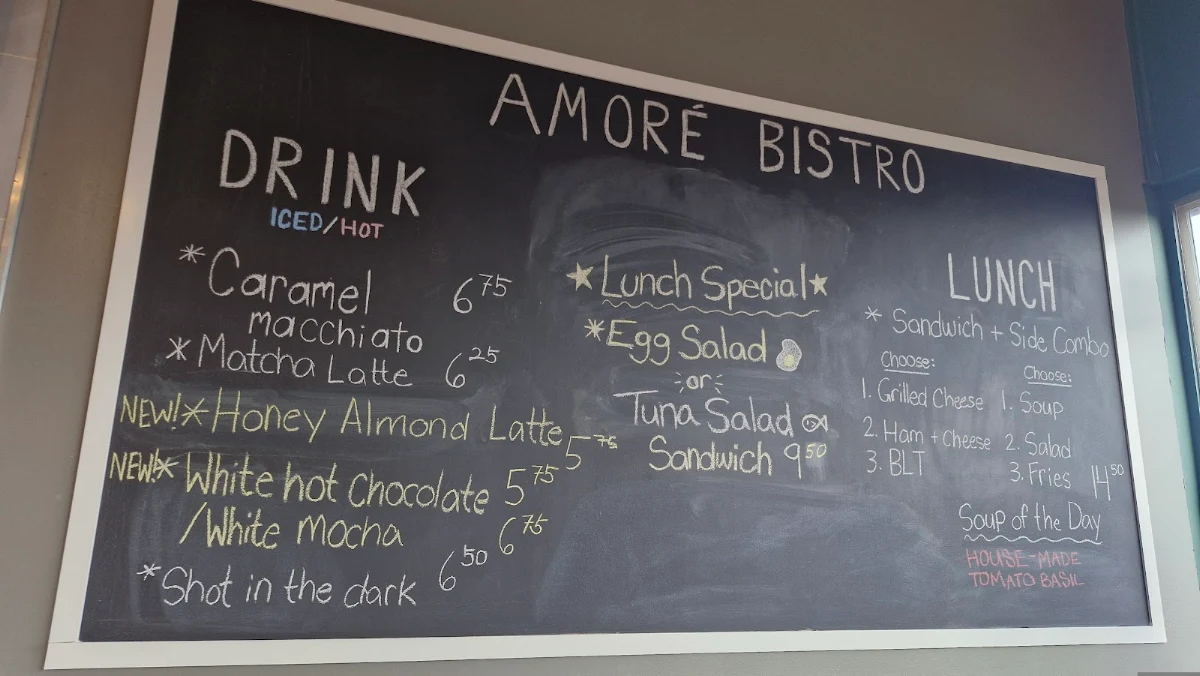 AMORÉ BISTRO
DRINK
ICED/HOT
* Caramel 6 75
macchiato
* Matcha Latte 6 25
NEW! * Honey Almond Latte 5 75
NEW! * White hot Chocolate 5 75
/White mocha 6 75
* Shot in the dark 6 50
★ Lunch Special ★
* Egg Salad
or
Tuna Salad
Sandwich 9 50
LUNCH
* Sandwich + Side Combo
Choose:
1. Grilled Cheese
2. Ham + Cheese
3. BLT
Choose:
1. Soup
2. Salad
3. Fries 14 50
Soup of the Day
HOUSE-MADE
TOMATO BASIL